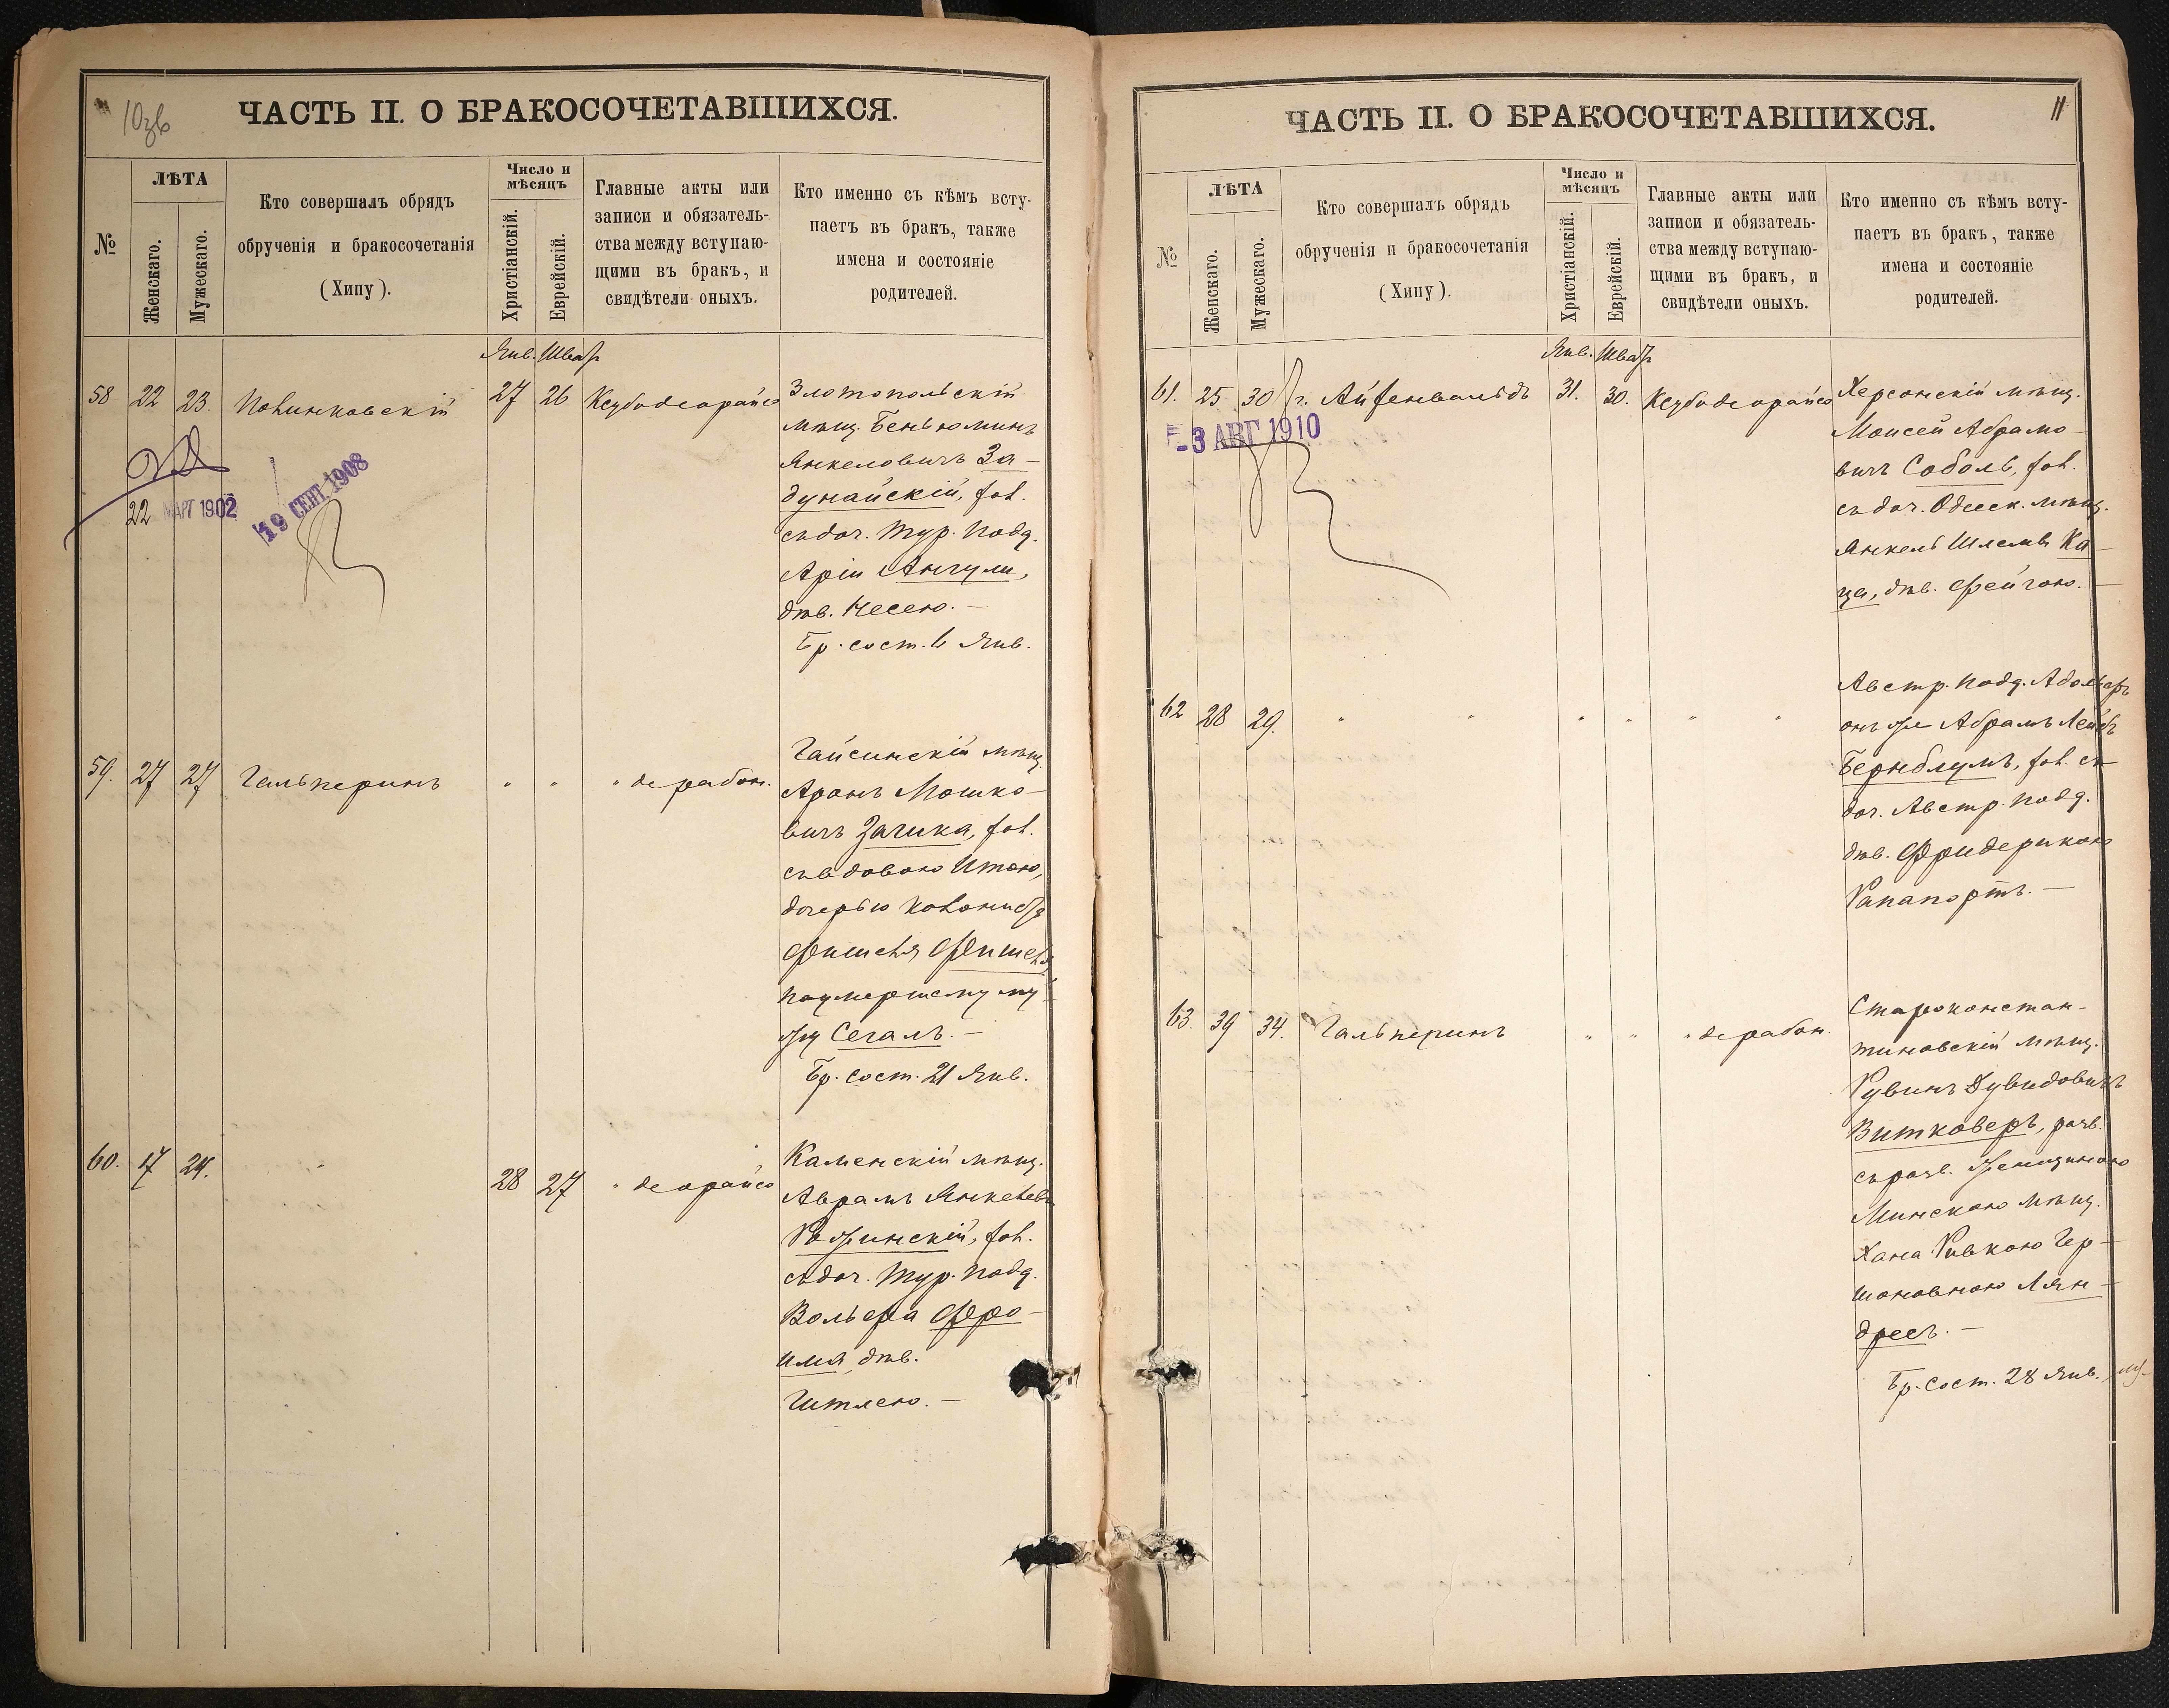 10зв
ЧАСТЬ II. О БРАКОСОЧЕТАВШИХСЯ.
№
ЛѢТА
Женскаго.
Мужескаго.
Кто совершалъ обрядъ
обрученія и бракосочетанія
(Хипу).
Число и
мѣсяцъ
Христіанскій.
Еврейскій.
Главные акты или
записи и обязатель-
ства между вступаю-
щими въ бракъ, и
свидѣтели оныхъ.
Кто именно съ кѣмъ всту-
паетъ въ бракъ, также
имена и состояніе
родителей.
Янв. Шватъ
58 22 23. 27 26 Ксубо деорайсо
Злотопольскій
мѣщ. Беньюминъ
Янкелевичъ За-
дунайскій, хол.
съ доч. Тур. подд.
Арiи Анчули,
дѣв. Несею. —
Бр. сост. 6 Янв.
22 МАРТ 1902
19 СЕНТ. 1908
59. 27 27 Гальперинъ " " " дерабон.
Гайсинскій мѣщ.
Аронъ Мошко-
вичъ Зачика, хол.
съ вдовою Итою,
дочерью колониста
Фишеля Фишеля
по умершему му-
жу Сегалъ. —
Бр. сост. 21 Янв.
60. 17 24. 28 27 " деорайсо
Каменскій мѣщ.
Аврамъ Янкелев.
Ражинскій, хол.
съ доч. Тур. подд.
Вольфа Фро-
има, дѣв.
Гитлею. —
11
ЧАСТЬ II. О БРАКОСОЧЕТАВШИХСЯ.
№
ЛѢТА
Женскаго.
Мужескаго.
Кто совершалъ обрядъ
обрученія и бракосочетанія
(Хипу).
Число и
мѣсяцъ
Христіанскій.
Еврейскій.
Главные акты или
записи и обязатель-
ства между вступаю-
щими въ бракъ, и
свидѣтели оныхъ.
Кто именно съ кѣмъ всту-
паетъ въ бракъ, также
имена и состояніе
родителей.
Янв. Шватъ
61. 25 30 г. Айзенвальдъ 31. 30. Ксубо деорайсо
Херсонскій мѣщ.
Моисей Абрамо-
вичъ Соболь, хол.
съ доч. Одесск. мѣщ.
Янкель Шлемы Ка-
ца, дѣв. Фейгою. —
-3 АВГ 1910
62 28 29. " " " " " "
Австр. подд. Адольфъ
онъ же Абрамъ Лейбъ
Бернблумъ, хол. съ
доч. Австр. подд.
дѣв. Фридерикою
Рапапортъ. —
63. 39 34. Гальперинъ " " " дерабон.
Староконстан-
тиновскій мѣщ.
Рувинъ Дувидовичъ
Витковеръ, разв.
съ разв. женщиною
Минскою мѣщ.
Хана Ривкою Гер-
шоновною Лян-
дресъ. —
Бр. сост. 28 Янв.